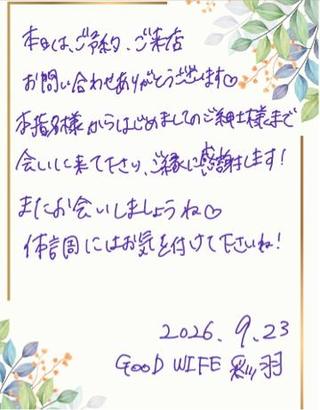 本日は、ご予約、ご来店
お問い合わせありがとうございます♡
本指名様からはじめましてのご紳士様まで
会いに来て下さり、ご縁に感謝します!
またお会いしましょうね♡
体調にはお気を付けて下さいね!
2026.9.23
GOOD WIFE 彩羽